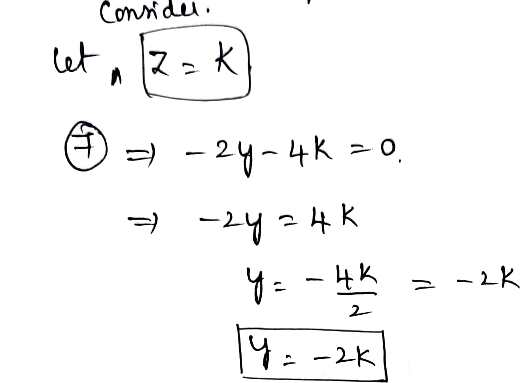 Consider.
Let, z = k
⑦ ⇒ -2y - 4k = 0.
⇒ -2y = 4k
y = - 4k/2 = -2k
y = -2k